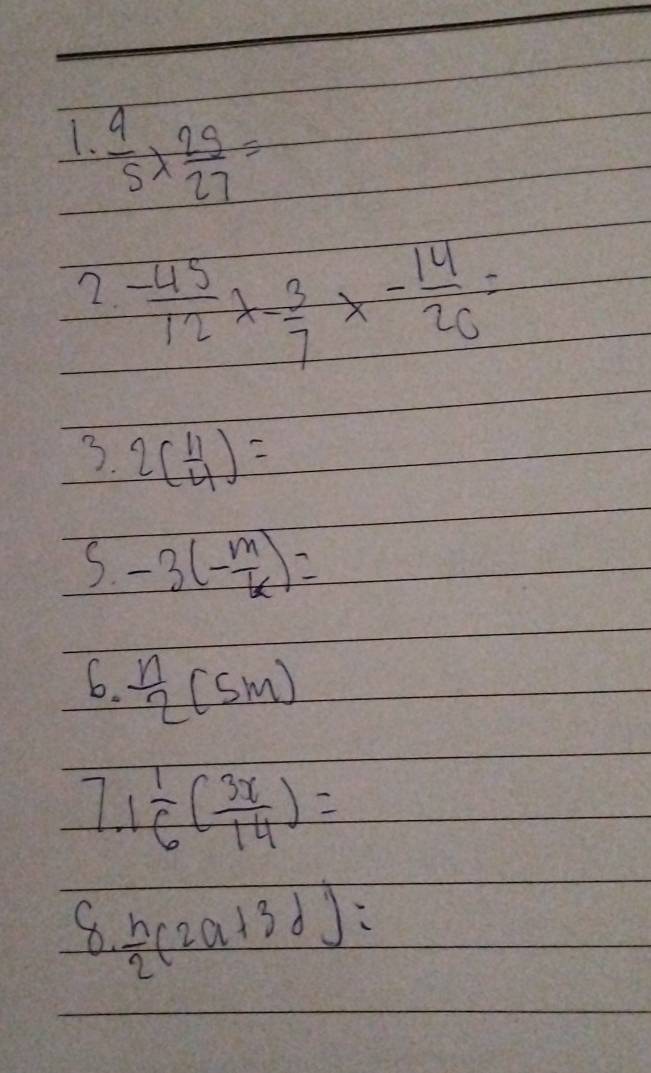 1. 9/5 × 25/27 =
2. -45/12 × -3/7 × -14/20 =
3. 2(n/4) =
5. -3(-m/k) =
6. n/2 (5m)
7. 1 1/6 (3x/14) =
8. n/2 (2a+3d) =